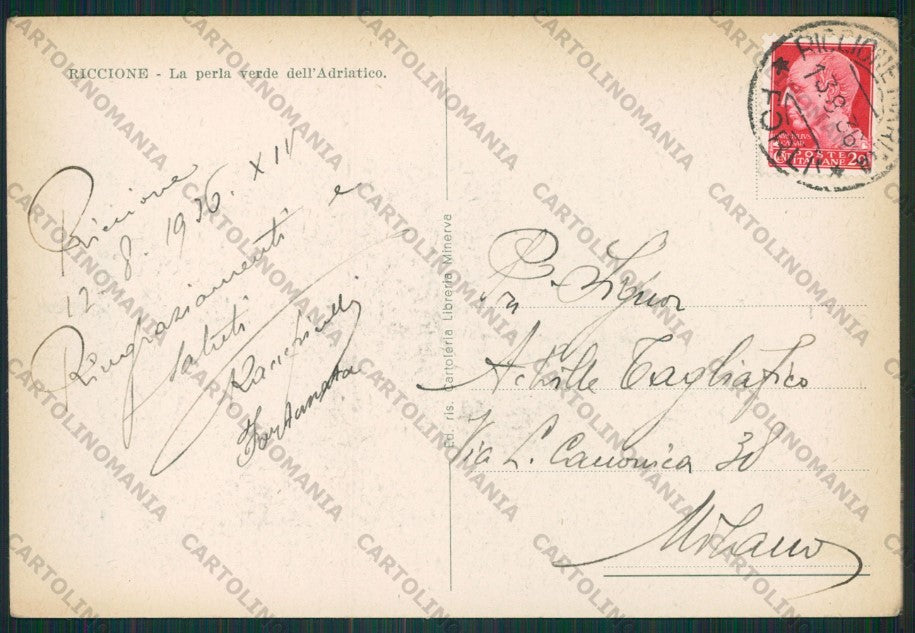 RICCIONE - La perla verde dell'Adriatico.
Riccione
12. 8. 1936. XIV
Ringraziamenti e
saluti
Fortunata
Ed. ris. Cartoleria Libreria Minerva
RICCIONE MARINA
13.8.36
* FORLI *
POSTE
ITALIANE
Signor
Achille Tagliafico
Via L. Canonica 38
Milano
CARTOLINOMANIA